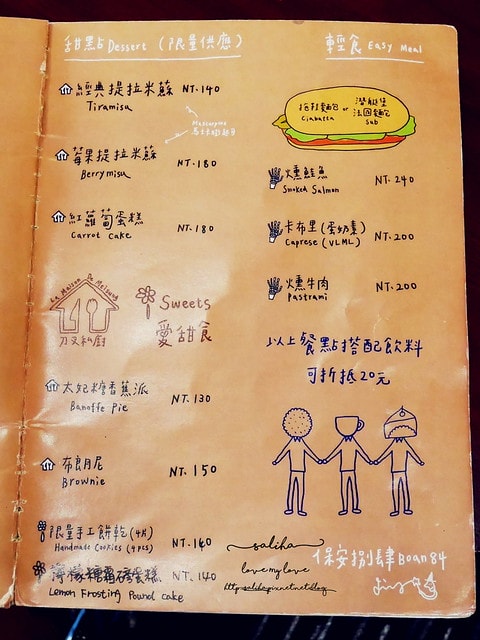 甜點 Dessert (限量供應)
經典提拉米蘇 NT. 140
Tiramisu
Mascarpone
莓果提拉米蘇 NT. 180
Berrymisu
紅蘿蔔蛋糕 NT. 180
Carrot cake
La Maison De
刀叉私廚
Sweets
愛甜食
太妃糖香蕉派 NT. 130
Banoffe Pie
布朗尼 NT. 150
Brownie
限量手工餅乾(4片) NT. 140
Handmade Cookies (4pcs)
檸檬糖霜磅蛋糕 NT. 140
Lemon Frosting Pound cake
輕食 Easy Meal
拖鞋麵包 or 潛艇堡
Ciabatta 法國麵包
Sub
燻鮭魚 NT. 240
Smoked Salmon
卡布里(蛋奶素) NT. 200
Caprese (VLML)
燻牛肉 NT. 200
Pastrami
以上餐點搭配飲料
可折抵20元
saliha
love my love
保安捌肆 Boan 84